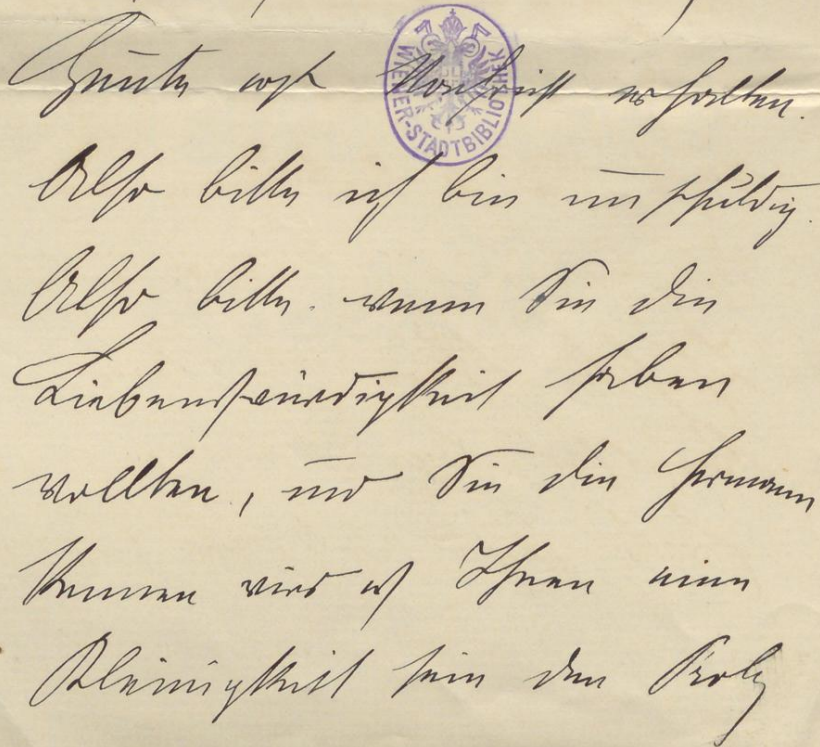 Heute erst Nachricht erhalten.
WIENER-STADTBIBLIOTHEK
Also bitte ich bin unschuldig.
Also bitte wenn Sie die
Liebenswürdigkeit haben
wollten, und Sie die Hermann
kennen wird es Ihnen eine
Kleinigkeit sein den